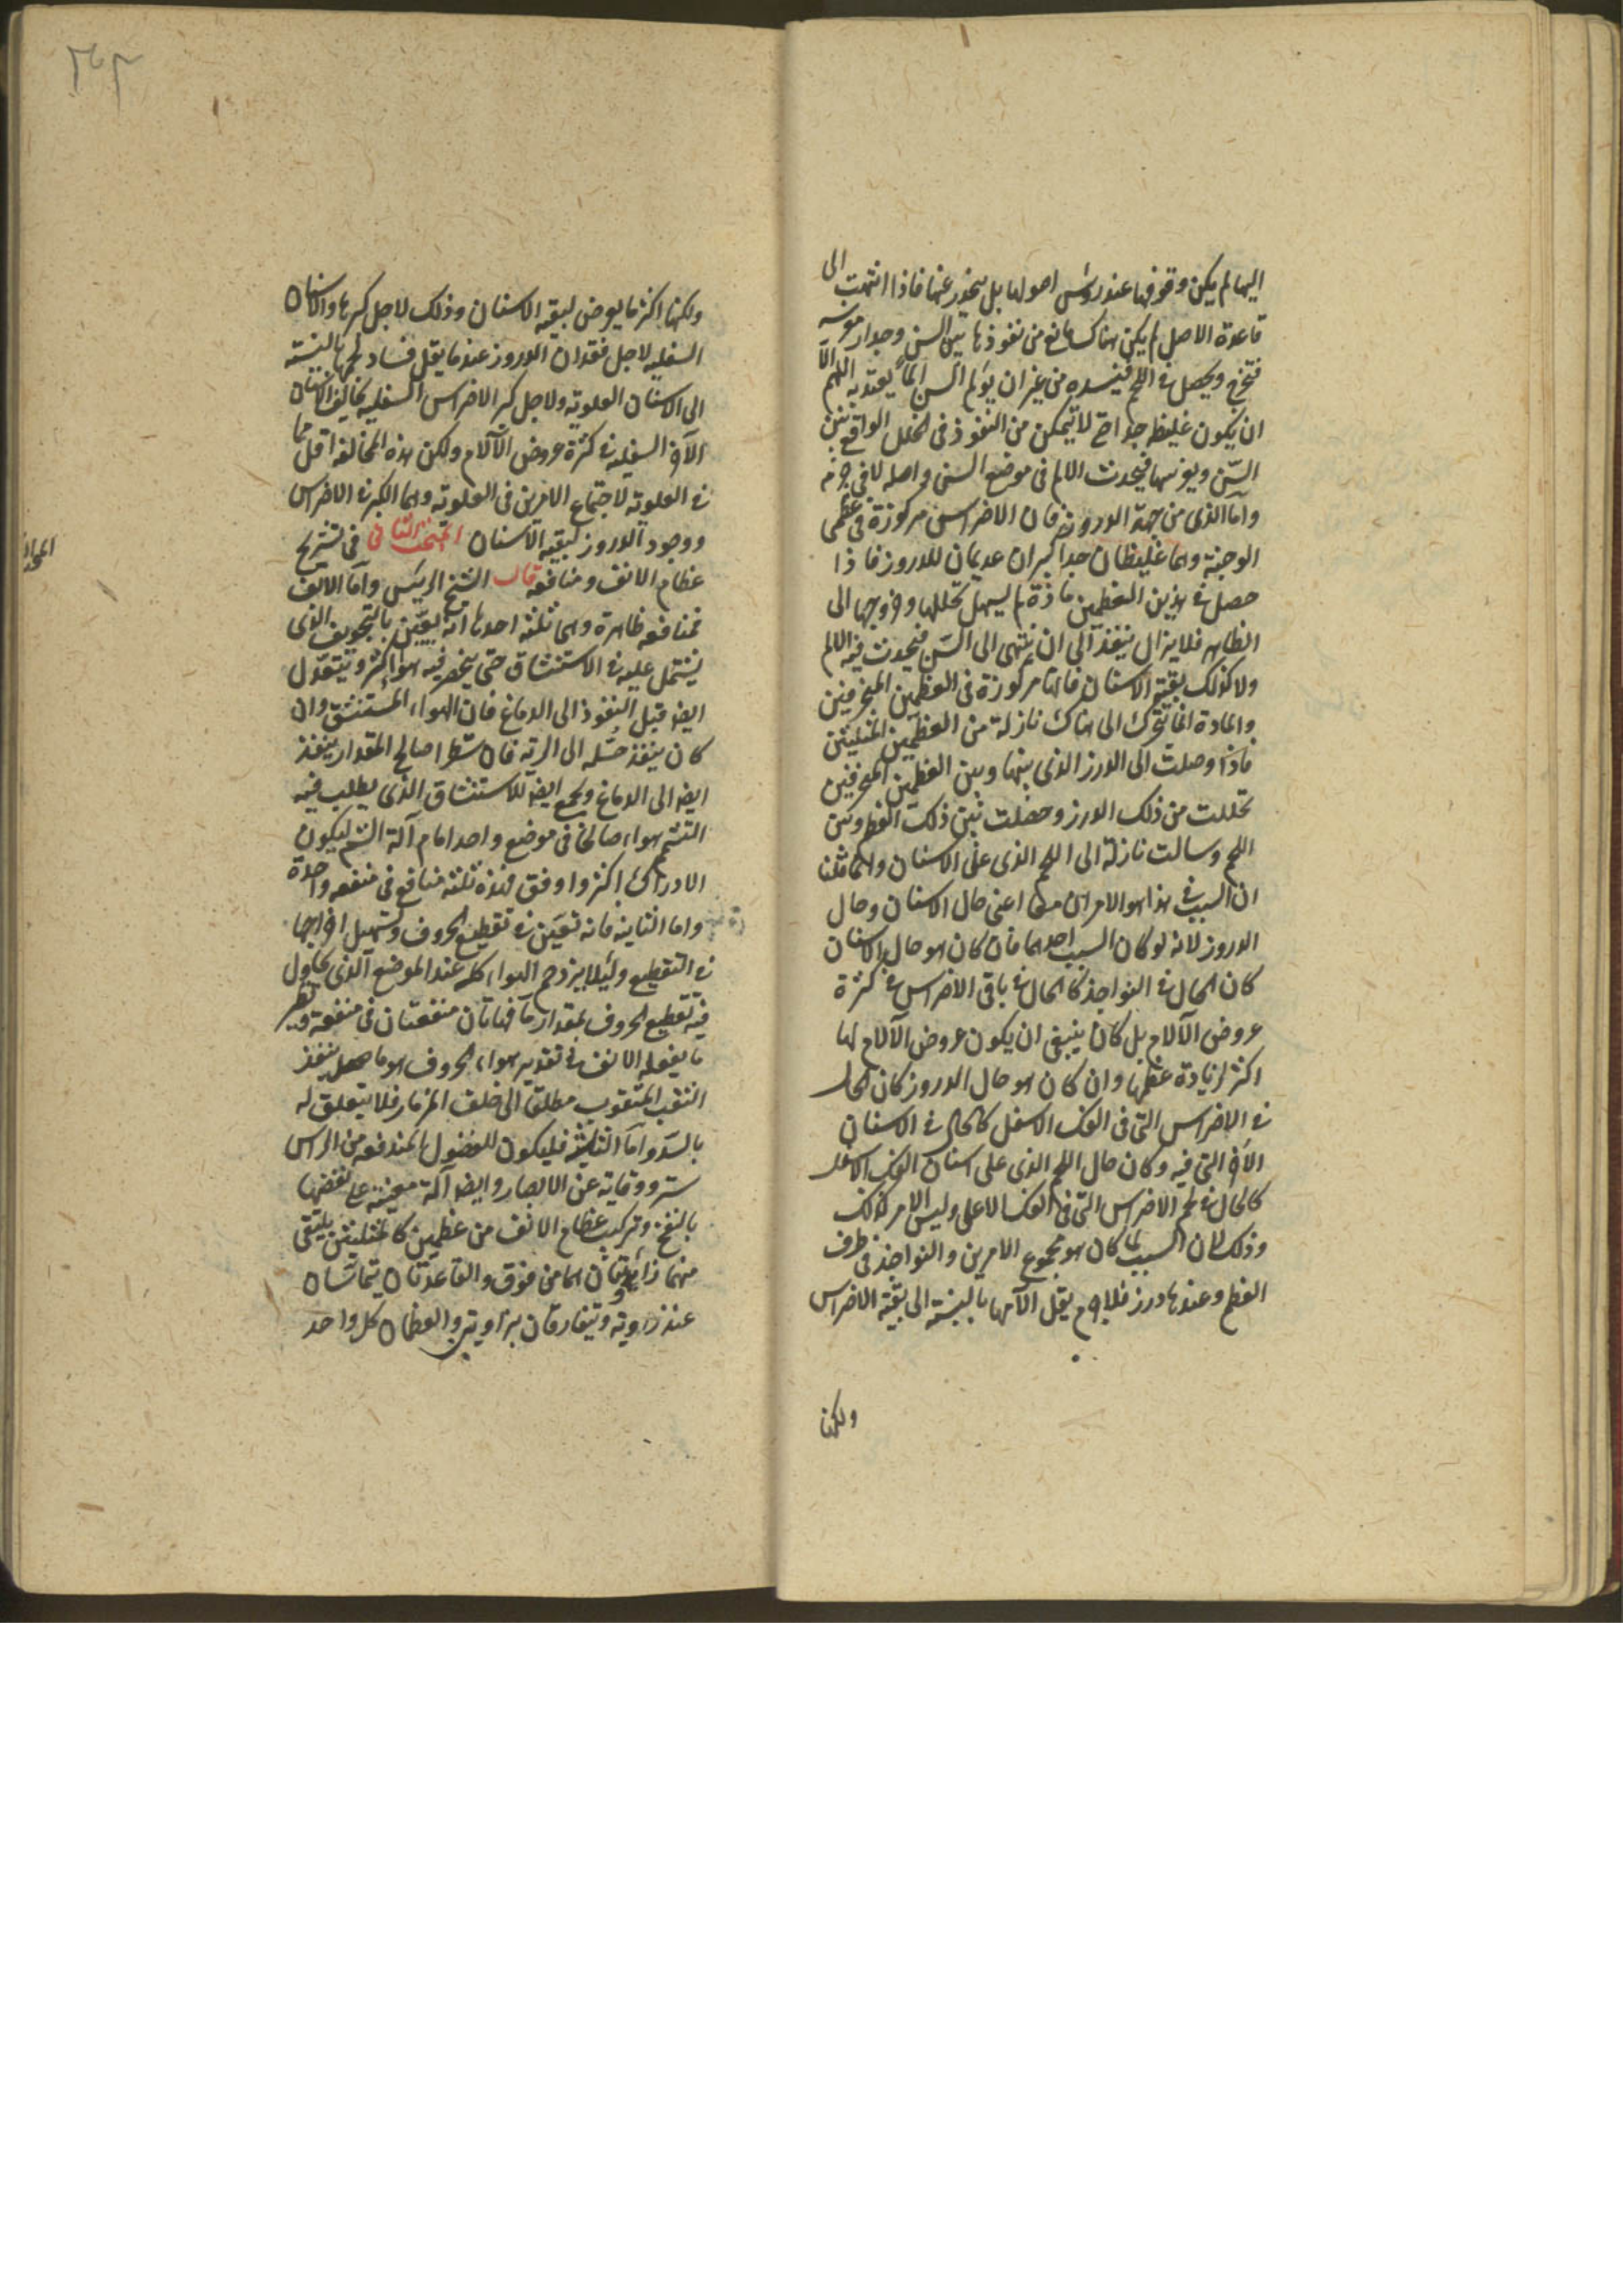 اليها لم يكن وقوفها عند رؤس اصولها بل ينحدر عنها فاذا انتهت الى
قاعدة الاصل لم يكن هناك مانع من نفوذها بين السن وجدار موضعه
فتخرج ويحصل في اللحم فيفسده من غير ان يؤلم السن الماً يعتد به اللهم الا
ان يكون غليظه جدا حتى لا تتمكن من النفوذ في الخلل الواقع بين
السن ويورمها فيحدث الالم في موضع السن واصله لا في جرمه
واما الذى من جهة الدروز فان الاضراس مركوزة في عظمى
الوجنة وهما غليظان جدا كبيران عديمان للدروز فاذا
حصل في هذين العظمين مادة لم يسهل تحللها وخروجها الى
الظاهر فلا يزال ينفذ الى ان ينتهى الى السن فيحدث فيه الالم
ولا كذلك بقية الاسنان فانها مركوزة في العظمين المنحرفين
والمادة انما تتحرك الى هناك نازلة من العظمين المثلثين
فاذا وصلت الى الدرز الذى بينها وبين العظمين المنحرفين
تحللت من ذلك الدرز وحصلت بين ذلك العظم وبين
اللحم وسالت نازلة الى اللحم الذى على الاسنان وانما قلنا
ان السبب في هذا هو الامران معا اعنى حال الاسنان وحال
الدروز لانه لو كان السبب احدهما فان كان هو حال الاسنان
كان الحال في النواجذ كالحال في باقى الاضراس في كثرة
عروض الآلام بل كان ينبغى ان يكون عروض الآلام لها
اكثر لزيادة عظمها وان كان هو حال الدروز كان الحال
في الاضراس التى فى الفك الاسفل كالحال في الاسنان
الاخر التى فيه وكان حال اللحم الذى على اسنان الفك الاسفل
كالحال في لحم الاضراس التى فى الفك الاعلى وليس الامر كذلك
وذلك لان السبب لما كان هو مجموع الامرين والنواجذ في طرف
العظم وعندها درز فلا جرم يقل الآمها بالنسبة الى بقية الاضراس
ولكنها
ولكنها اكثر ما يعرض لبقية الاسنان وذلك لاجل كبرها والاسنان
السفلية لاجل فقدان الدروز عندها يقل فساد لحمها بالنسبة
الى الاسنان العلوية ولاجل كبر الاضراس السفلية يخالف الاسنان
الاخر السفلية في كثرة عروض الآلام ولكن هذه المخالفة اقل مما
في العلوية لاجتماع الامرين في العلوية وهما الكبر في الاضراس
ووجود الدروز لبقية الاسنان المبحث الثانى في تشريح
عظام الانف ومنافعه قال الشيخ الرئيس واما الانف
فمنافعه ظاهرة وهى ثلثة احدها انه يعين بالتجويف الذى
يشتمل عليه في الاستنشاق حتى ينحصر فيه هواء اكثر ويتعدل
ايضا قبل النفوذ الى الدماغ فان الهواء المستنشق وان
كان ينفذ جمله الى الرئة فان شطرا صالح المقدار ينفذ
ايضا الى الدماغ ويجمع ايضا للاستنشاق الذى يطلب فيه
التشمم هواء صالحا فى موضع واحد امام آلة الشم ليكون
الادراك اكثر واوفق فهذه ثلثة منافع في منفعة واحدة
واما الثانية فانه تعين في تقطيع الحروف وتسهيل اخراجها
في التقطيع ولئلا يزدحم الهواء كله عند الموضع الذى يحاول
فيه تقطيع الحروف بمقدار ما فهاتان منفعتان في منفعة ونظير
ما يفعله الانف في تقدير هواء الحروف هو ما يفعله
الثقب المثقوب مطلقا الى خلف المزمار فلا يتعلق له
بالسد واما الثالثة فليكون للفضول المندفعة من الراس
ستر ووقاية عن الابصار وايضا آلة معينة على نفضها
بالنفخ وتركيب عظام الانف من عظمين كالمثلثين يلتقى
منهما زاويتان هما من فوق والقاعدتان يتماسان
عند زاوية ويتفارقان بزاويتين والعظمان كل واحد